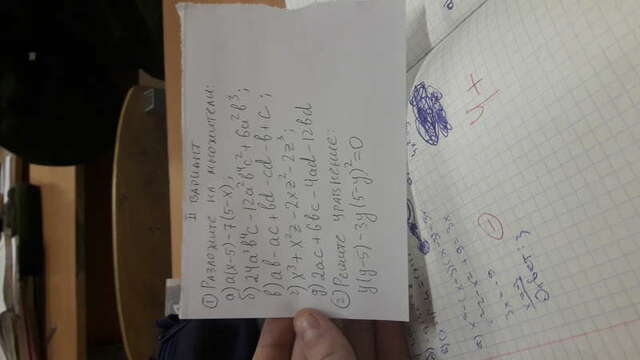 II ВАРИАНТ
① РАЗЛОЖИТЕ НА МНОЖИТЕЛИ:
а) a(x-5)-7(5-x);
б) 24a³b⁴c-12a²b⁴c²+6a²b³;
в) ab-ac+bd-cd-b+c;
г) x³+x²z-2xz²-2z³;
д) 2ac+6bc-4ad-12bd
② РЕШИТЕ УРАВНЕНИЕ:
y(y-5)-3y(5-y)²=0
3x=-9
x=-3
Ответ: 3
4+